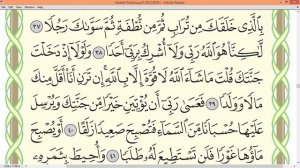 Mushaf Madina.pdf (SECURED) - Adobe Reader
بِٱلَّذِى خَلَقَكَ مِن تُرَابٍ ثُمَّ مِن نُّطْفَةٍ ثُمَّ سَوَّىٰكَ رَجُلًا ٣٧
لَّٰكِنَّا۠ هُوَ ٱللَّهُ رَبِّى وَلَآ أُشْرِكُ بِرَبِّىٓ أَحَدًا ٣٨ وَلَوْلَآ إِذْ دَخَلْتَ
جَنَّتَكَ قُلْتَ مَا شَآءَ ٱللَّهُ لَا قُوَّةَ إِلَّا بِٱللَّهِ إِن تَرَنِ أَنَا۠ أَقَلَّ مِنكَ
مَالًا وَوَلَدًا ٣٩ فَعَسَىٰ رَبِّىٓ أَن يُؤْتِيَنِ خَيْرًا مِّن جَنَّتِكَ وَيُرْسِلَ
عَلَيْهَا حُسْبَانًا مِّنَ ٱلسَّمَآءِ فَتُصْبِحَ صَعِيدًا زَلَقًا ٤٠ أَوْ يُصْبِحَ
مَآؤُهَا غَوْرًا فَلَن تَسْتَطِيعَ لَهُۥ طَلَبًا ٤١ وَأُحِيطَ بِثَمَرِهِۦ